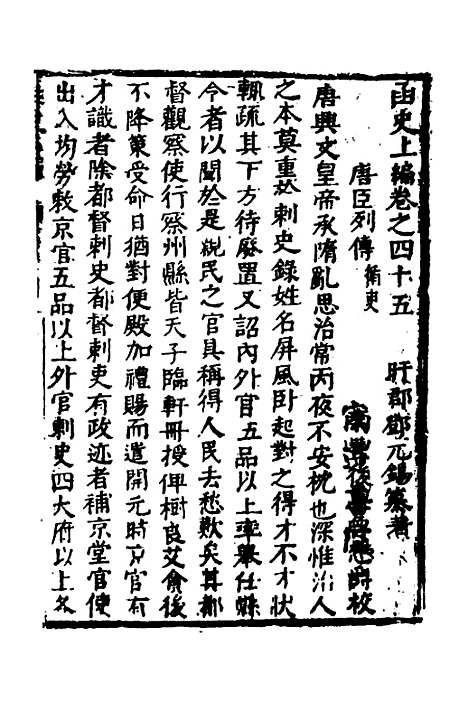 函史上編卷之四十五　　盱郡鄧元錫纂著
唐臣列傳　循吏
校
唐興文皇帝承隋亂思治常丙夜不安枕也深惟治人
之本莫重於刺史錄姓名屏風臥起對之得才不才狀
輒疏其下方待廢置又詔內外官五品以上率舉任縣
令者以聞於是親民之官具稱得人民去愁歎矣其都
督觀察使行察州縣皆天子臨軒冊授俾樹良艾貪後
不降策受命日猶對便殿加禮賜而遣開元時京官有
才識者除都督刺史都督刺吏有政迹者補京堂官使
出入均勞敕京官五品以上外官刺史四大府以上各